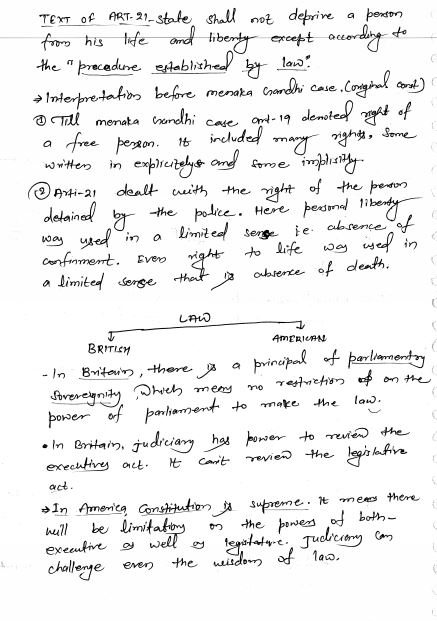 TEXT OF ART-21 - state shall not deprive a person
from his life and liberty except according to
the "procedure established by law".
→ Interpretation before menaka Gandhi case. (original const)
① Till menaka Gandhi case art-19 denoted right of
a free person. It included many rights, some
written in explicitely and some implisitly.
② Arti-21 dealt with the right of the person
detained by the police. Here personal liberty
was used in a limited sense i.e. absence of
confinment. Even right to life was used in
a limited sense that is absence of death.
LAW
BRITISH AMERICAN
- In Britain, there is a principal of parliamentry
sovereignity, which means no restriction on the
power of parliament to make the law.
• In Britain, judiciary has power to review the
executives act. It can't review the legislative
act.
→ In America Constitution is supreme. It means there
will be limitations on the powers of both -
executive as well as legislature. Judiciary can
challenge even the wisdom of law.